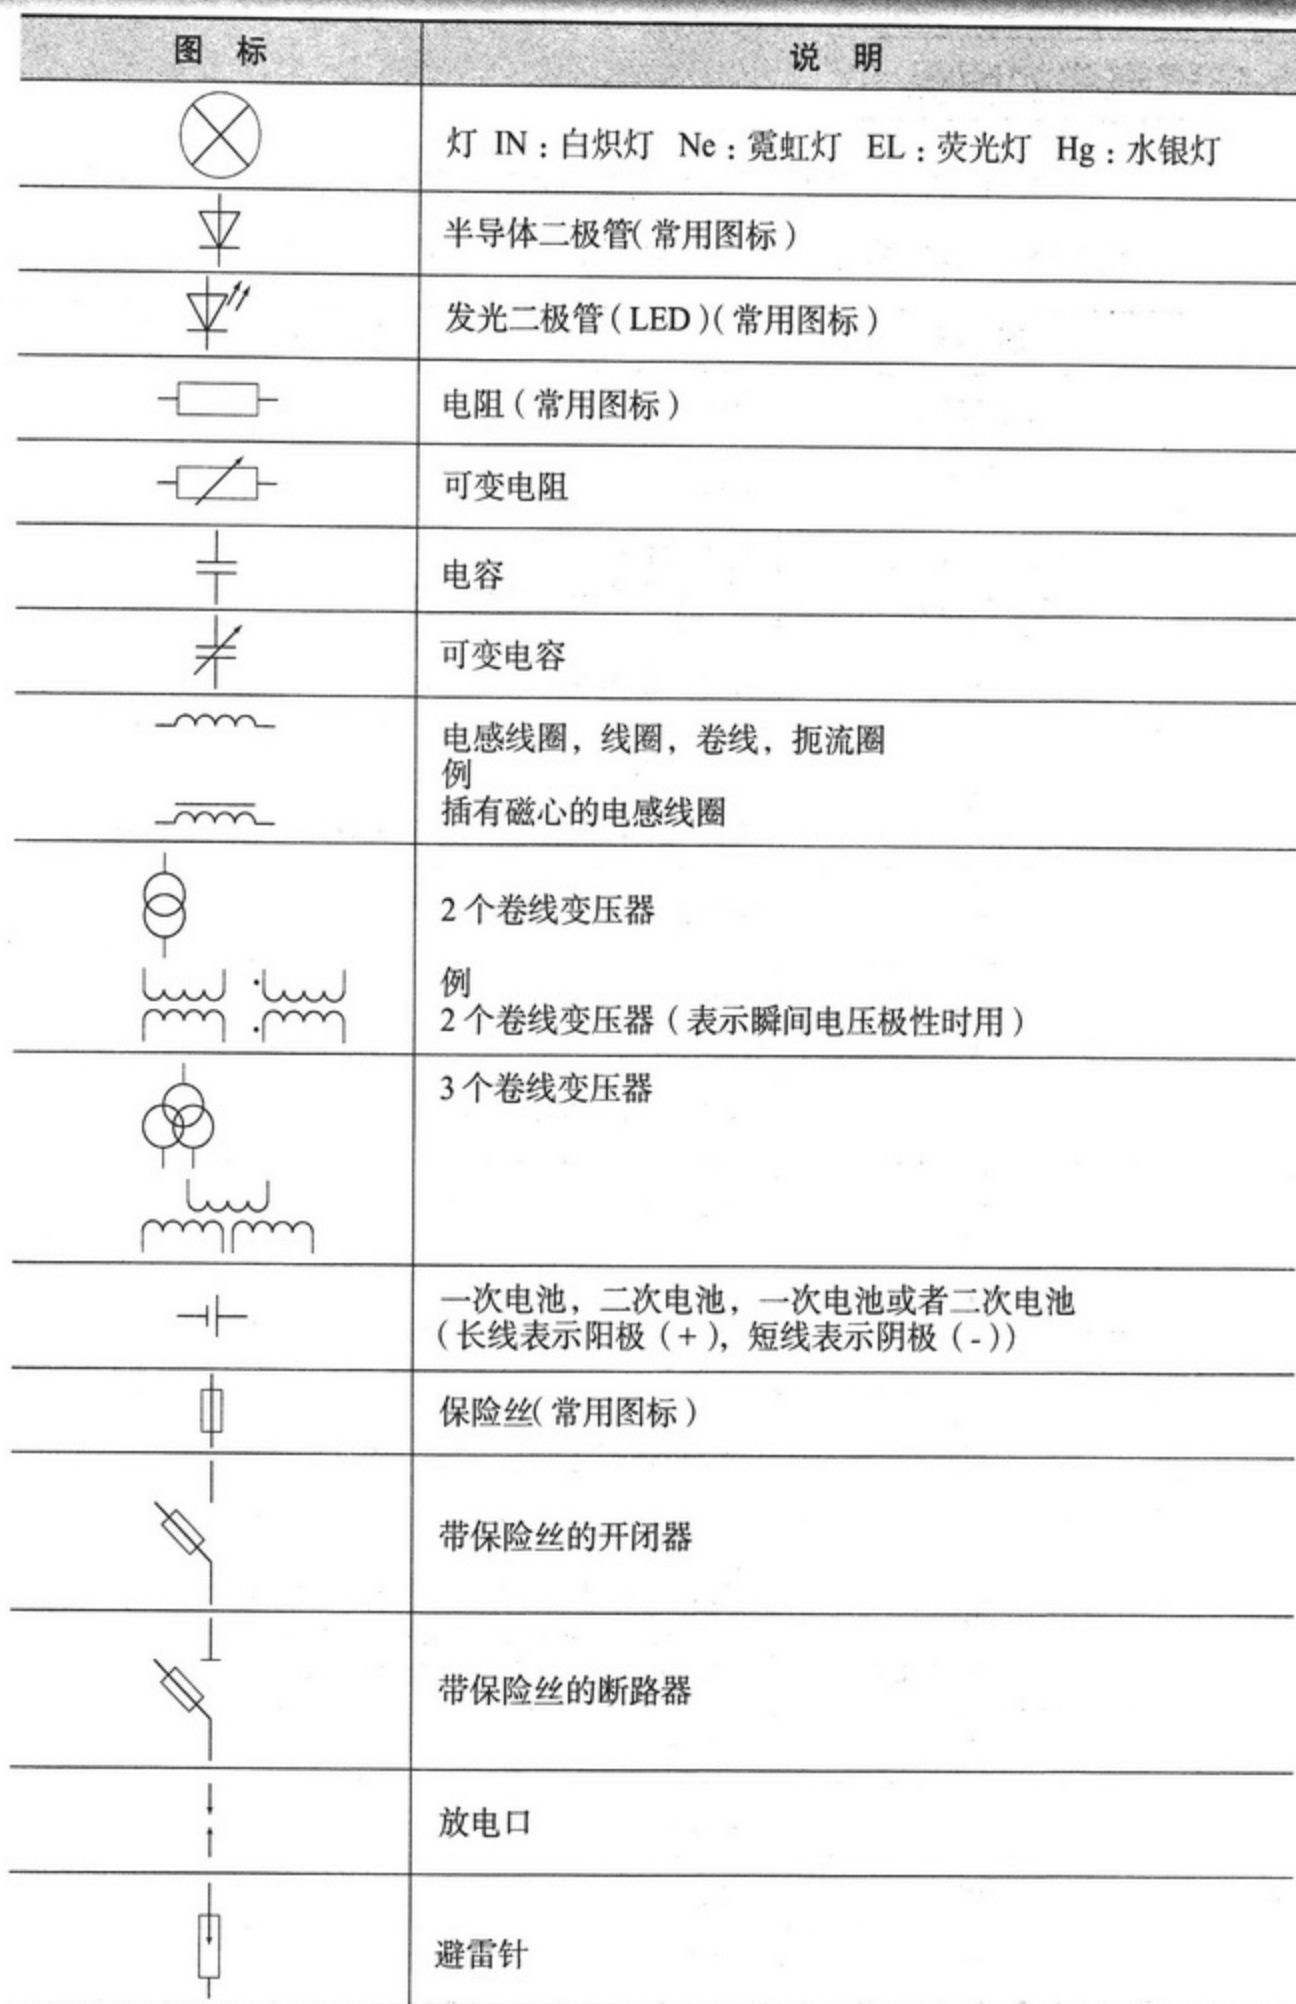 图 标 说 明
灯 IN：白炽灯 Ne：霓虹灯 EL：荧光灯 Hg：水银灯
半导体二极管(常用图标)
发光二极管(LED)(常用图标)
电阻(常用图标)
可变电阻
电容
可变电容
电感线圈，线圈，卷线，扼流圈
例
插有磁心的电感线圈
2个卷线变压器
例
2个卷线变压器(表示瞬间电压极性时用)
3个卷线变压器
一次电池，二次电池，一次电池或者二次电池
(长线表示阳极(+)，短线表示阴极(-))
保险丝(常用图标)
带保险丝的开闭器
带保险丝的断路器
放电口
避雷针